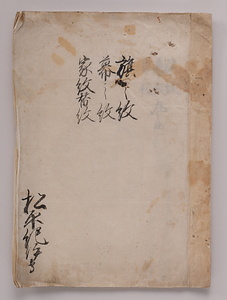 旗之紋
幕之紋
家紋替紋
松平紀伊守